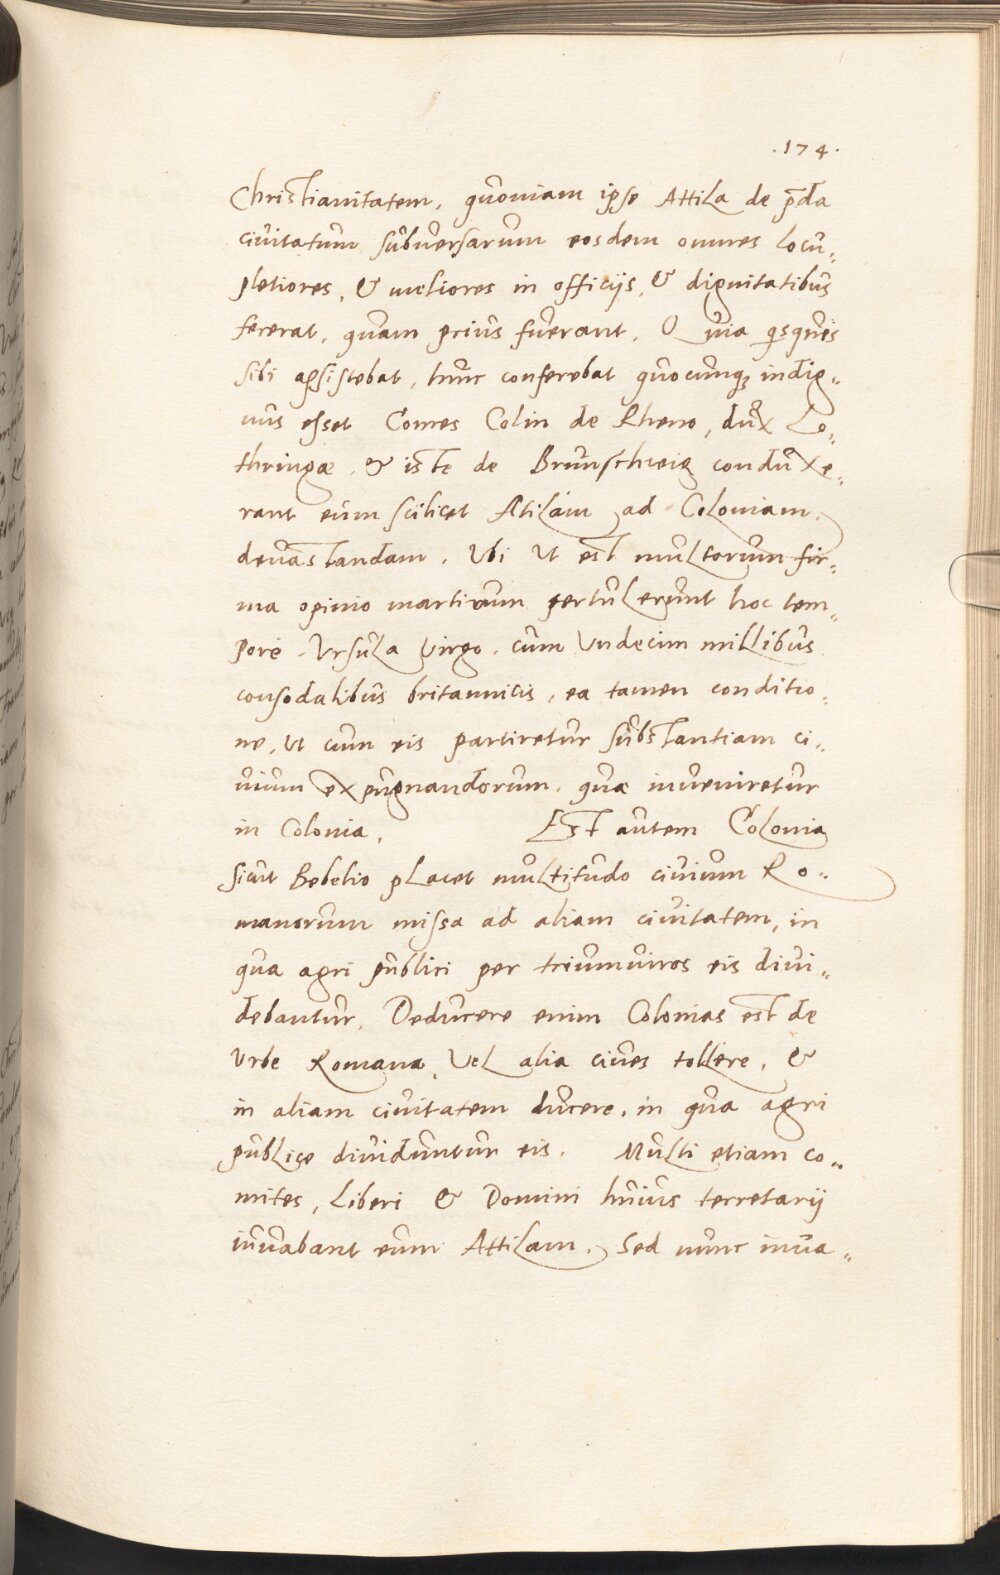 .174.
Christianitatem, quoniam ipse Attila de pr̄da
ciuitatum subuersarum eosdem omnes locu„
pletiores, & meliores in officijs, & dignitatibus
fecerat, quam prius fuerant. Quia
sibi assistebat, hunc conferebat quocumq; indig„
nus esset Comes Colin de Rheno, dux Lo„
thringæ, & iste de Brunschweig conduxe„
rant eum scilicet Atilam ad Coloniam
deuastandam. Ubi ut est multorum fir„
ma opinio martirium pertulerunt hoc tem„
pore Ursula Virgo, cum Undecim millibus
consodalibus britannicis, ea tamen conditio„
ne, ut cum eis partiretur substantiam ci„
uium expugnandorum, quæ inueniretur
in Colonia. Est autem Colonia
sicut Bebelio placet multitudo ciuium Ro„
manorum missa ad aliam ciuitatem, in
qua agri publici per triumuiros eis diui„
debantur. Deducere enim Colonias est de
Urbe Romana, Vel alia ciues tollere, &
in aliam ciuitatem ducere, in qua agri
publice diuiduntur eis. Multi etiam co„
mites, Liberi & Domini huius terretarij
iuuabant eum Attilam. Sed nunc inua„